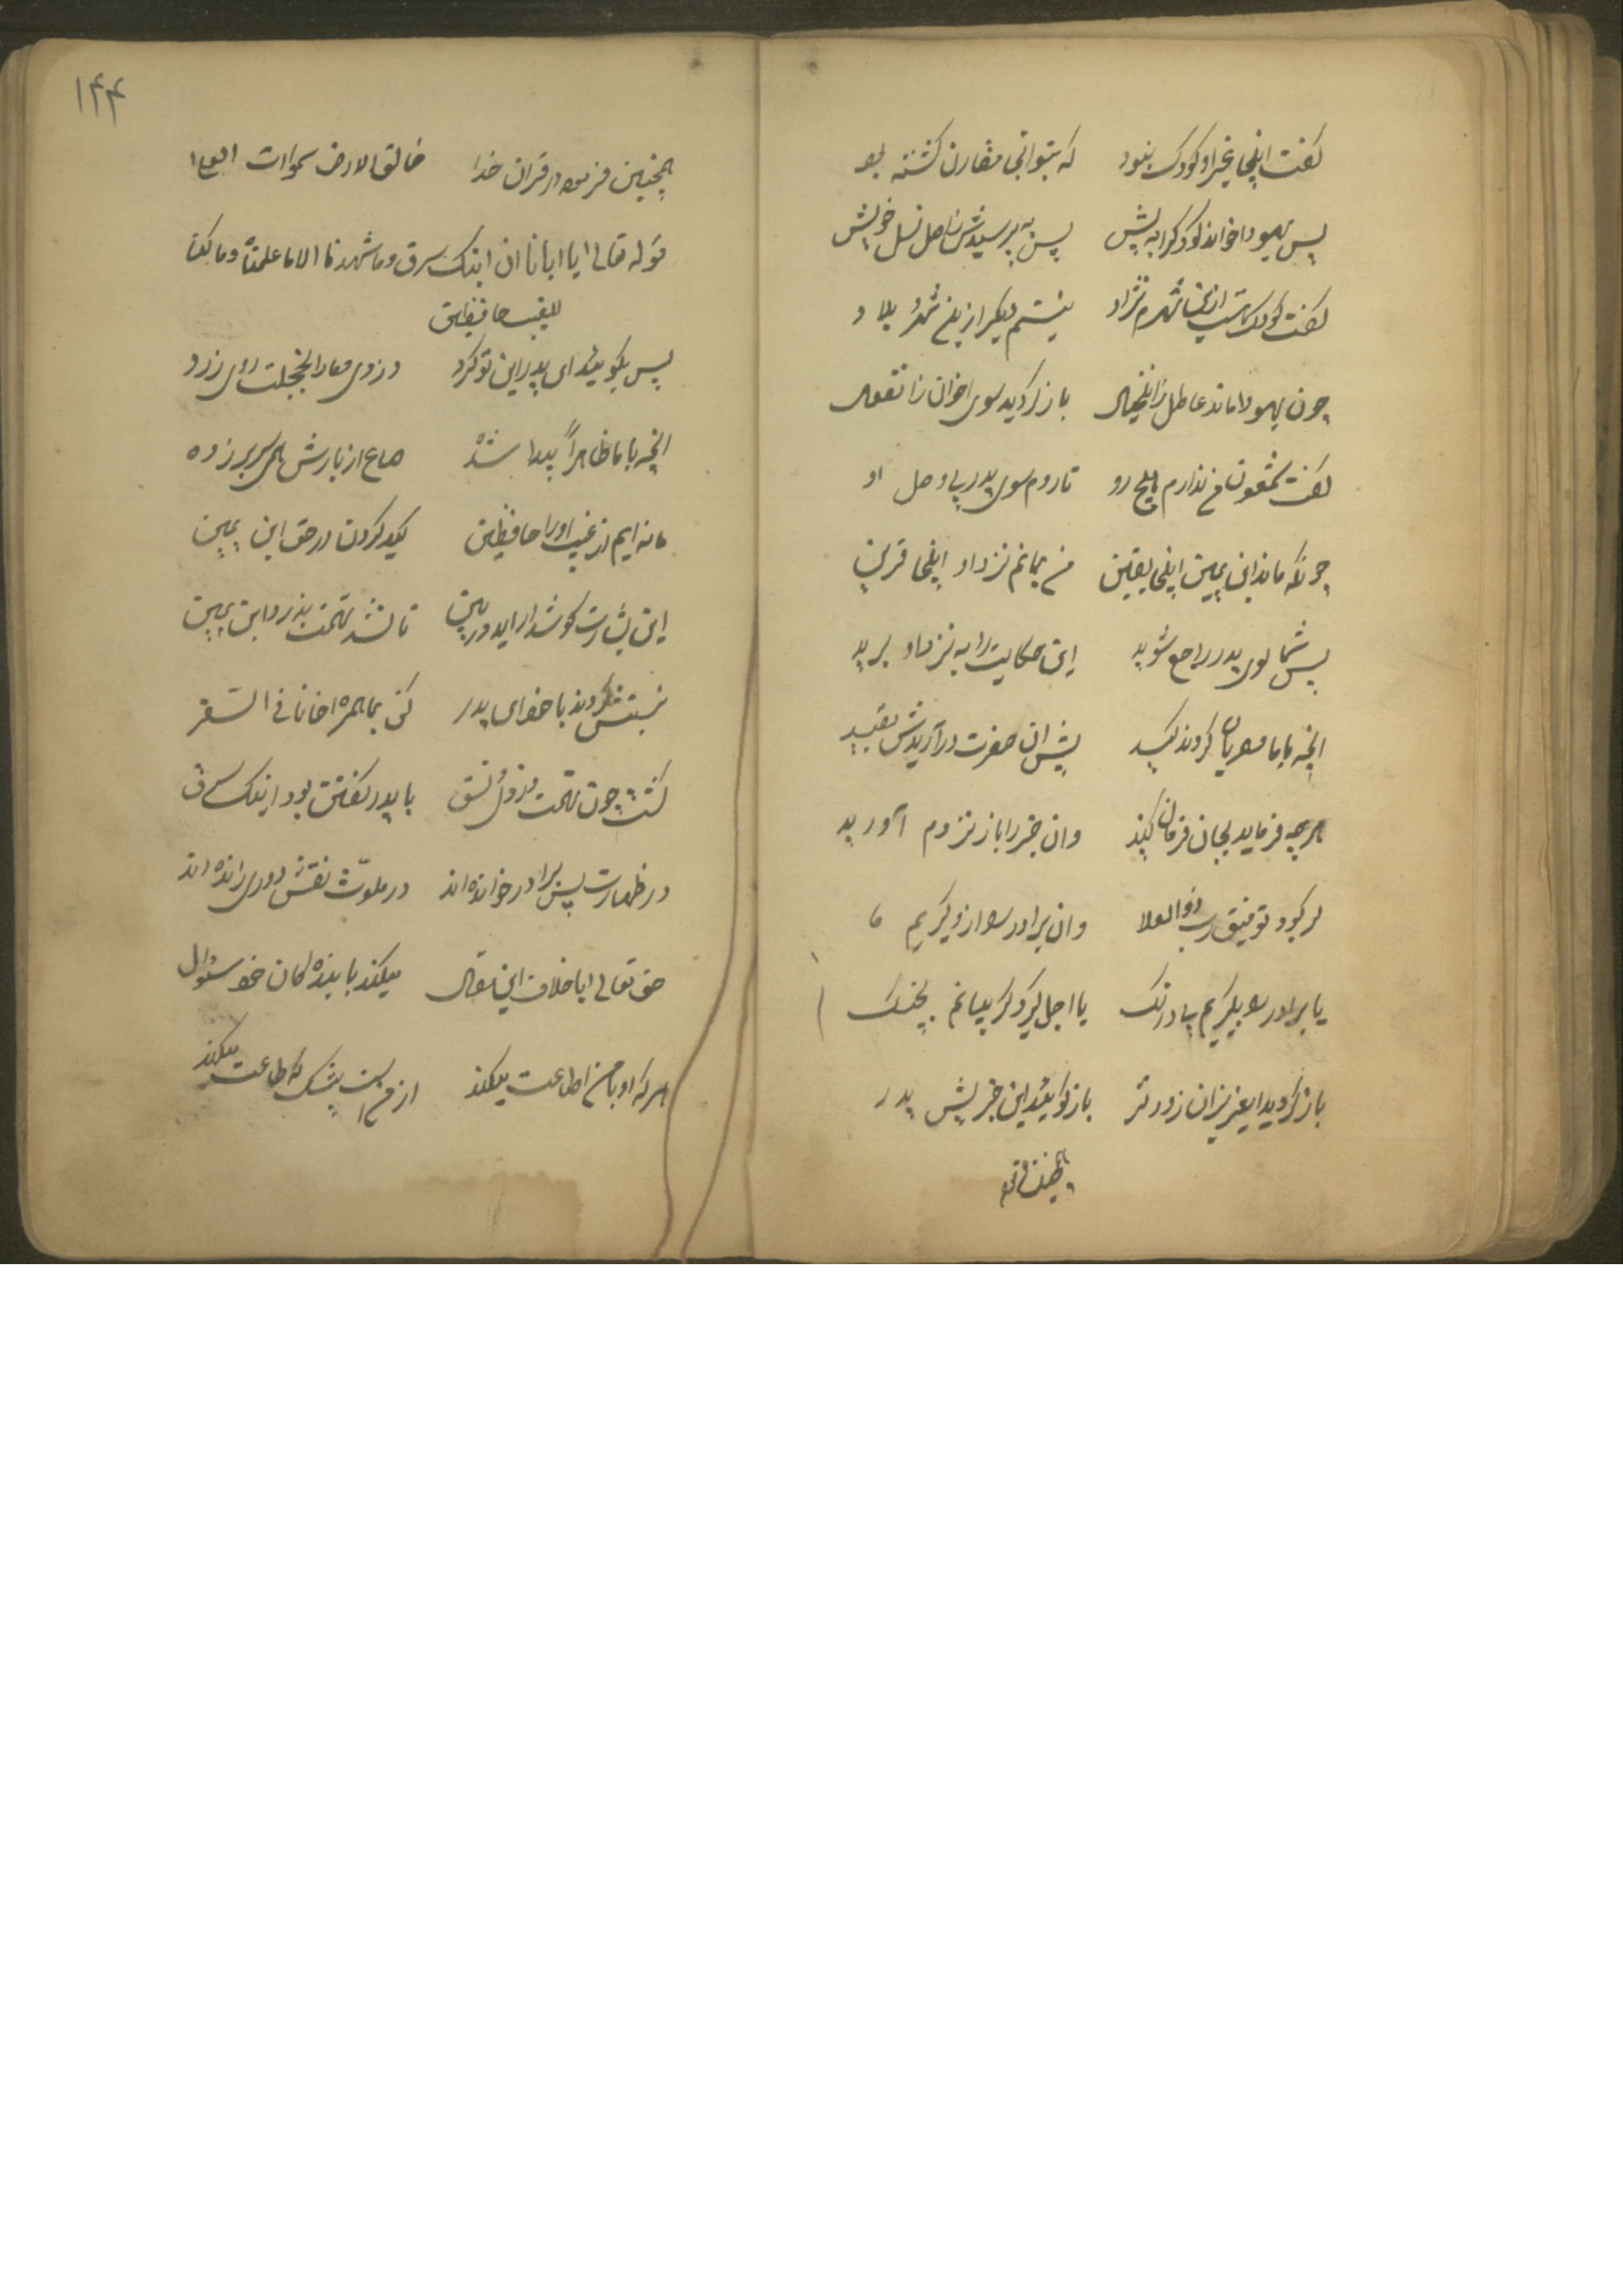 گفت اینجا غیر او کودک نبود که بتوانی مقارن گشته بود
پس یهودا خواند کودک را به پیش پس به پرسیدش ز اصل نسل خویش
گفت کودک نیستم دیگر ازین شهر بلاد
چون یهودا ماند عاطل زان خیال باز گردید سوی اخوان ز انفعال
گفت شمعون من ندارم هیچ رو تا روم سوی پدر بی وصل او
چونکه ماند ابن یمین اینجا یقین من بمانم نزد او اینجا قرین
پس شما سوی پدر راجع شوید این حکایت را به نزد او برید
آنچه با ما مصریان کردند کید پیش ان حضرت در آریدش بقید
هرچه فرماید بجان فرمان کنید وان خبر را باز نزدم آورید
گر بود توفیق رب ذو العلا وان برادر را ازو گیریم ما
یا برادر را بگیریم بی درنگ یا اجل گیرد گریبانم بچنگ
باز گردید ای عزیزان زودتر باز گوئید این خبر پیش پدر
۱۴۴
همچنین فرموده در قران خدا خالق الارض سموات العلا
قوله تعالی ایا ابانا ان ابنک سرق وما شهدنا الا ما علمنا وما کنا
للغیب حافظین
پس بگوئید ای پدر این تو کرد دزدی و ما را خجلت روی زرد
آنچه با ما ظاهراً پیدا شده صاع از بارش همی سر بر زده
ما نه ایم از غیب او را حافظین کید کردن در حق ابن یمین
این بشارت گوشدار اید وربین تا نشد تهمت بذر و ابن یمین
نسبتش کردند با خود ای پدر کی بما همراه اخانا فی السفر
گشت چون تهمت دزدی نسق با پدر گفتن بود ابنک سرق
در طهارت پس برادر خوانده اند در ملوث نقش دوری رانده اند
حق تعالی با خلاف این مقال میکند با بنده کان خود سئوال
هر که او با من اطاعت میکند از من است بیشک که طاعت میکند